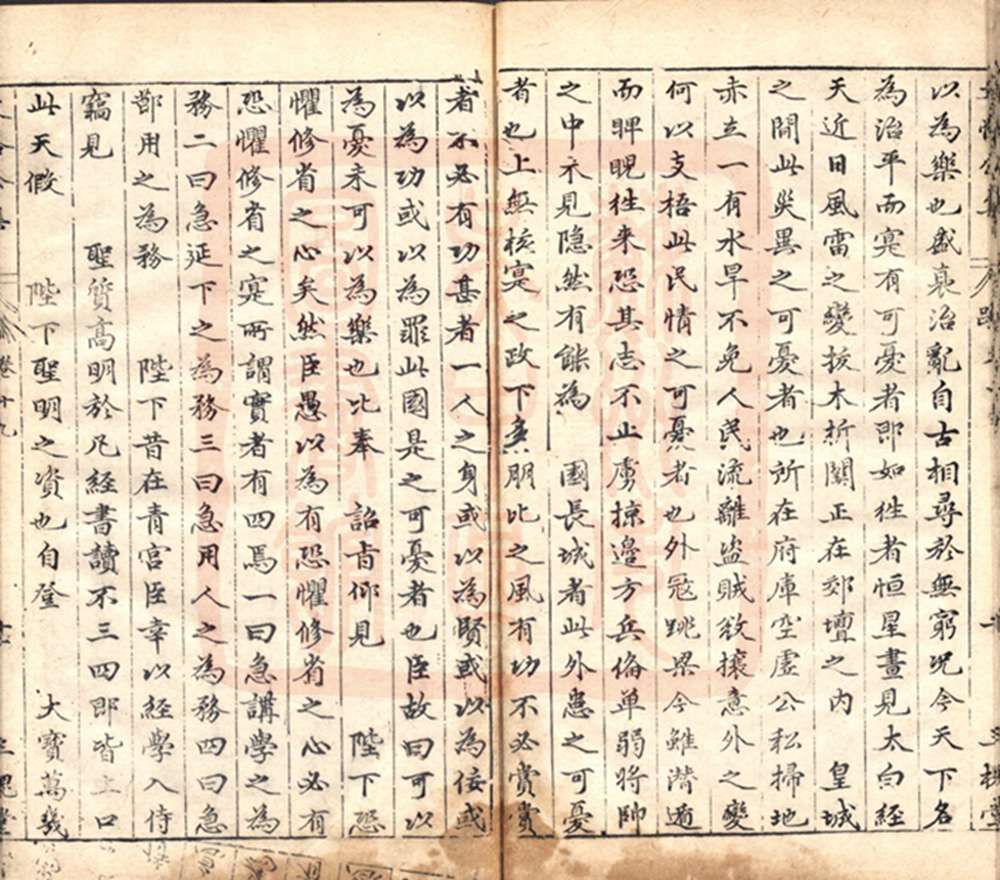 以為樂也盛衰治亂自古相尋於無窮况今天下名
為治平而寔有可憂者即如徃者恒星晝見太白經
天近日風雷之變拔木折關正在郊壇之内　皇城
之間此災異之可憂者也所在府庫空虛公私掃地
赤立一有水旱不免人民流離盜賊敓攘意外之變
何以支梧此民情之可憂者也外寇跳梁今雖潜遁
而睥睨徃来恐其志不止虜掠邉方兵備单弱将帥
之中未見隐然有能為　國長城者此外患之可憂
者也上無核寔之政下多朋比之風有功不必賞賞
者不必有功甚者一人之身或以為賢或以為佞或
以為功或以為罪此國是之可憂者也臣故曰可以
為憂未可以為樂也比奉　詔旨仰見　陛下恐
懼修省之心矣然臣愚以為有恐懼修省之心必有
恐懼修省之寔所謂實者有四焉一曰急講學之為
務二曰急延下之為務三曰急用人之為務四曰急
鄙用之為務　陛下昔在青宫臣幸以經學入侍
竊見　聖質高明於凡經書讀不三四即皆上口
此天假　陛下聖明之資也自登　大寶萬幾